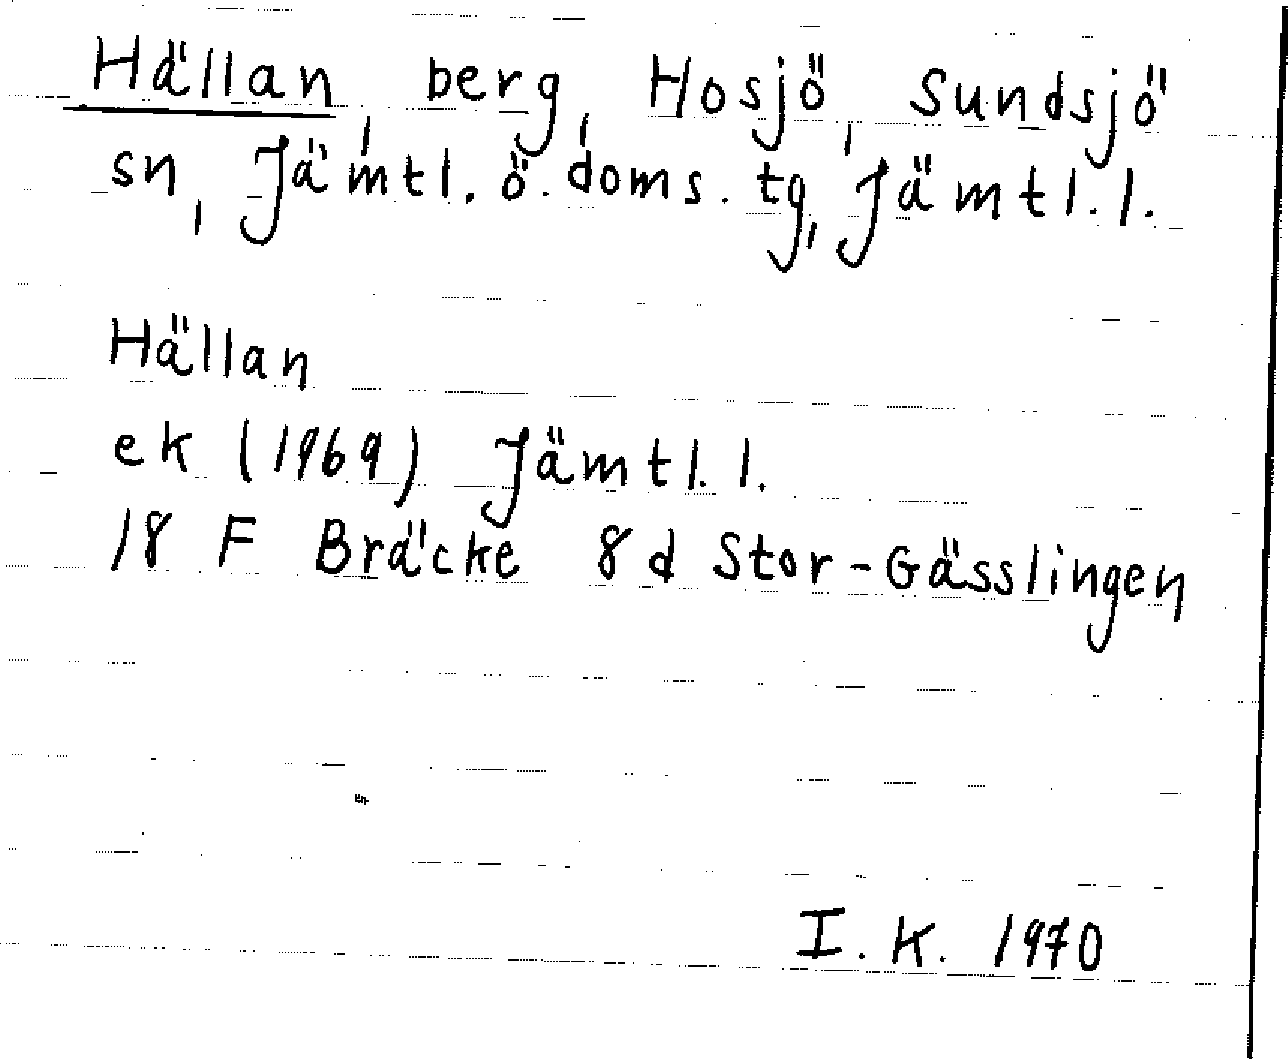 Hällan, berg, Hosjö, Sundsjö
sn, Jämtl. ö. doms. tg, Jämtl. l.
Hällan
ek (1969) Jämtl. l.
18 F Bräcke 8d Stor-Gässlingen
I. K. 1970